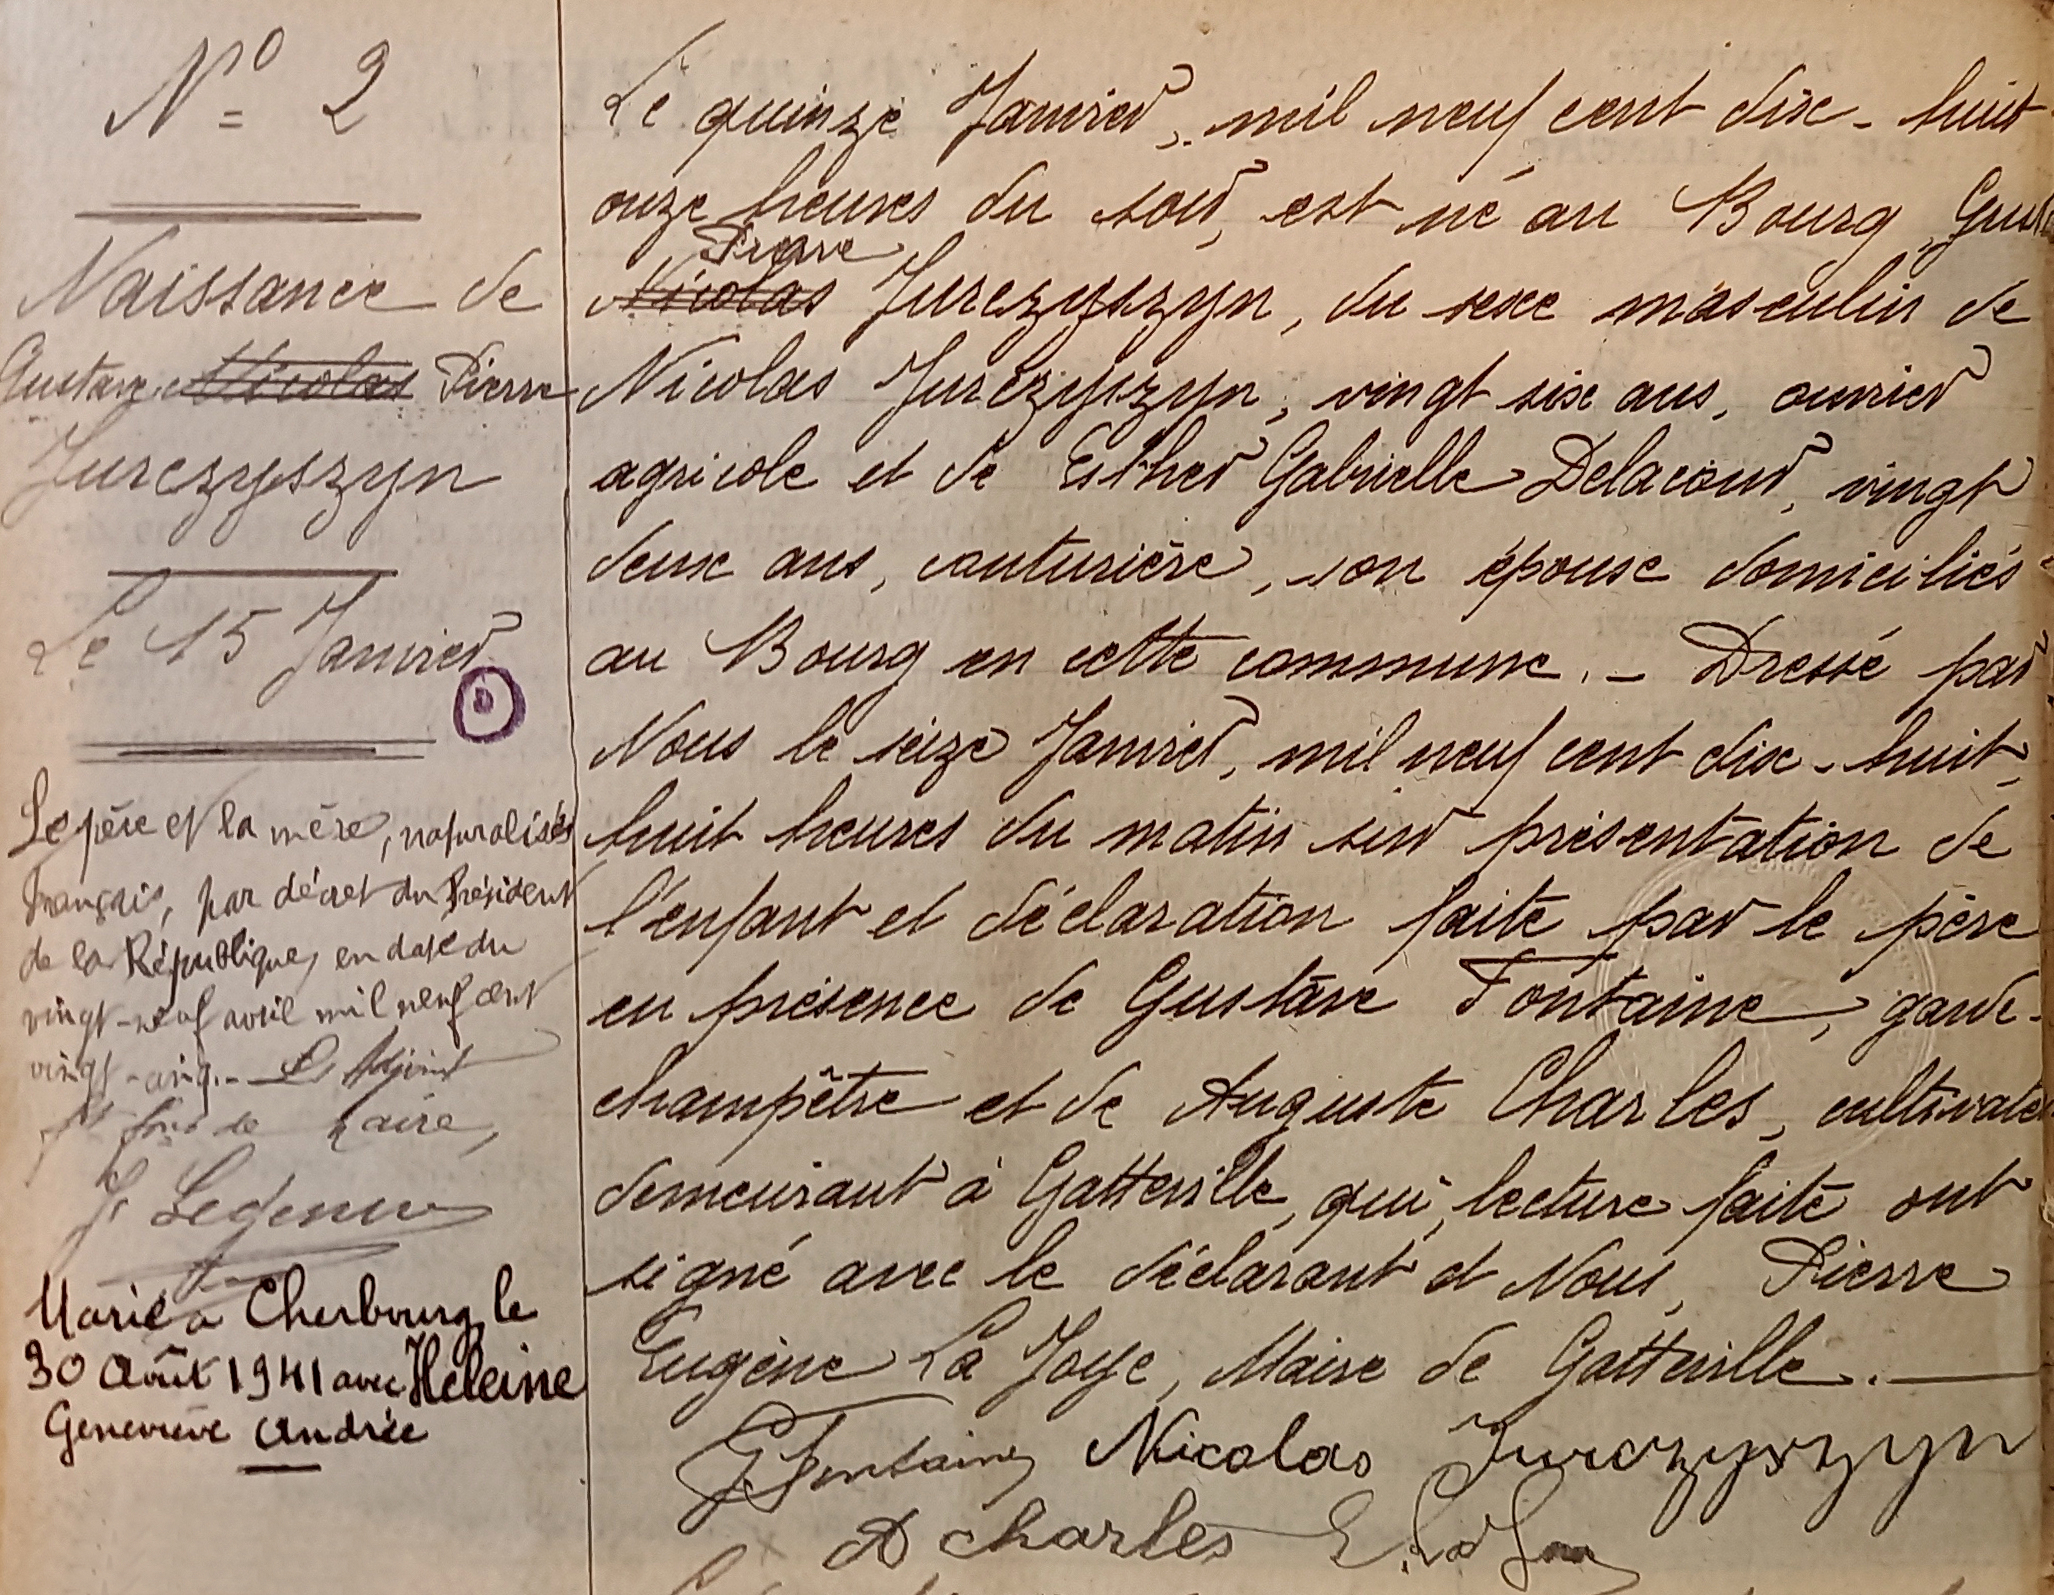 N° 2
Naissance de
Gustave Nicolas Pierre
Jurczyszyn
Le 15 Janvier
D
Le père et la mère, naturalisés
français, par décret du Président
de la République, en date du
vingt-neuf avril mil neuf cent
vingt-cinq.- L'Adjoint
Maire,
Marié à Cherbourg le
30 Août 1941 avec Héleine
Geneviève Andrée
Le quinze Janvier, mil neuf cent dix-huit
onze heures du soir, est né au Bourg,
Pierre
Nicolas Jurczyszyn, du sexe masculin de
Nicolas Jurczyszyn, vingt six ans, ouvrier
agricole et de Esther Gabrielle Delacour, vingt
deux ans, couturière, son épouse domiciliés
au Bourg en cette commune. - Dressé par
Nous le seize Janvier, mil neuf cent dix-huit,
huit heures du matin sur présentation de
l'enfant et déclaration faite par le père
en présence de Gustave Fontaine, garde-
champêtre et de Auguste Charles, cultivateur
demeurant à Gatteville, qui, lecture faite ont
signé avec le déclarant et Nous, Pierre
Eugène La Joye, Maire de Gatteville.
G Fontaine Nicolas Jurczyszyn
A Charles